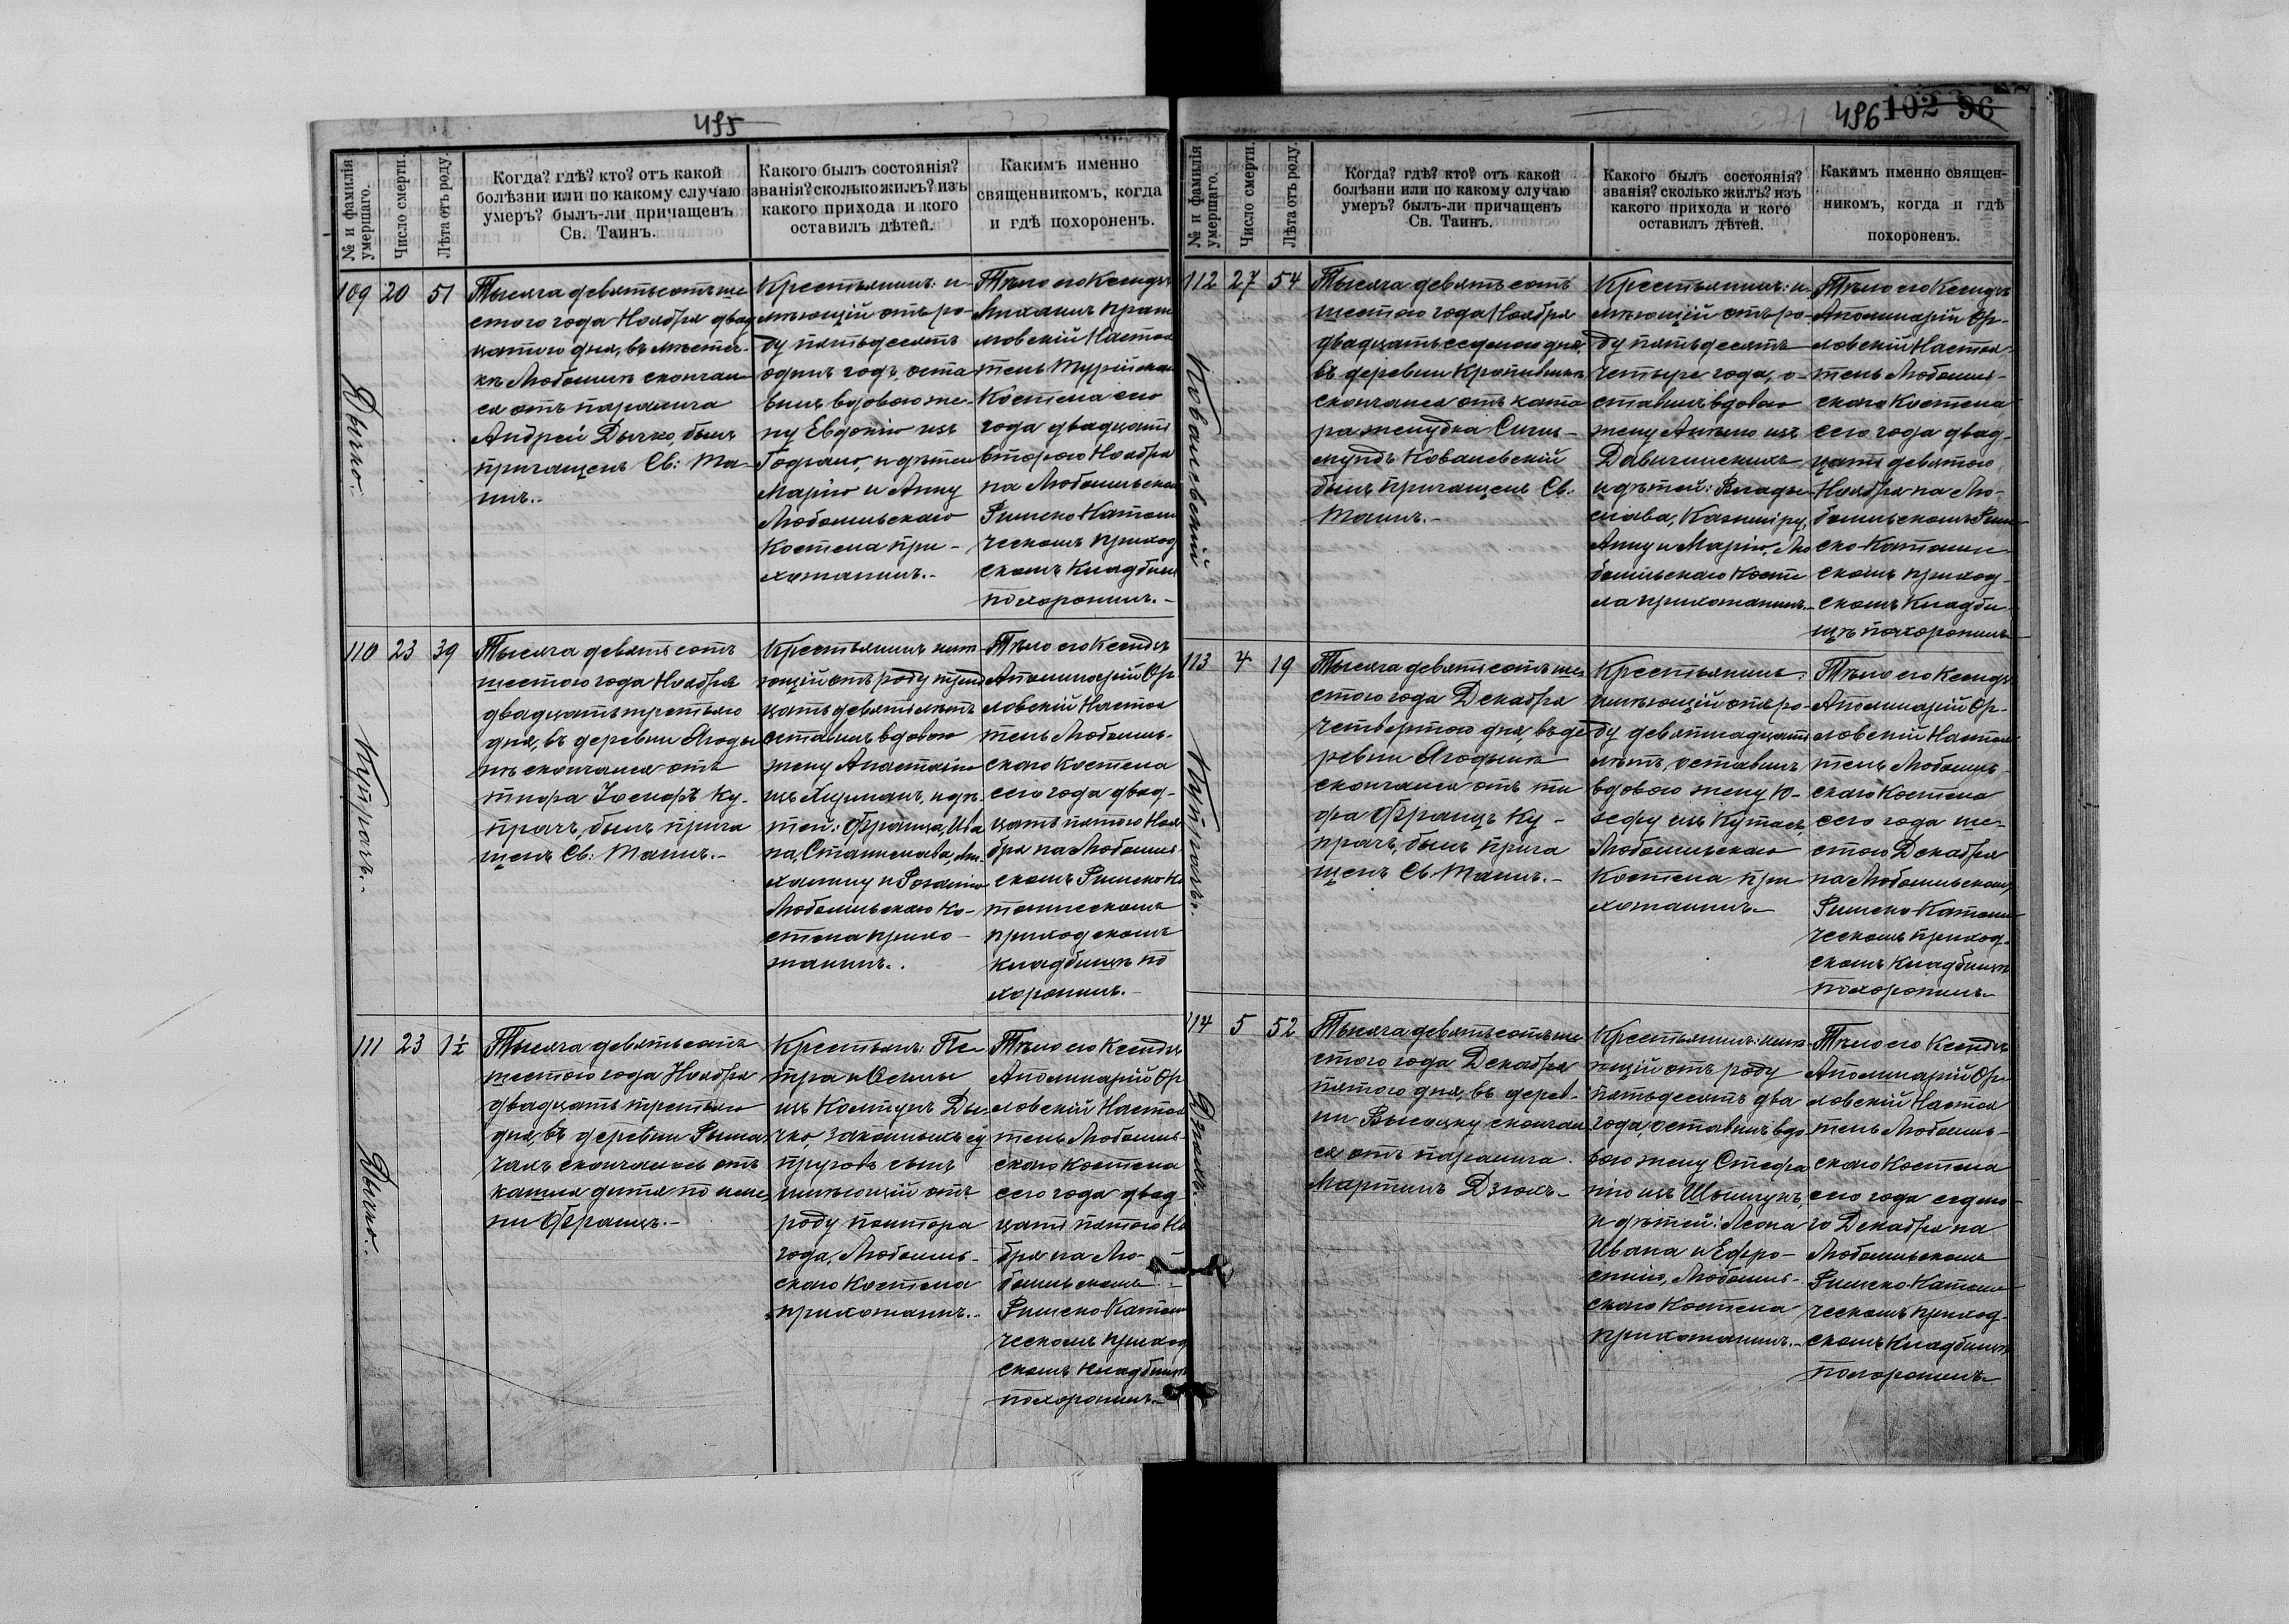 495
№ и фамилія умершаго.
Число смерти.
Лѣта отъ роду.
Когда? гдѣ? кто? отъ какой
болѣзни или по какому случаю
умеръ? былъ-ли причащенъ
Св. Таинъ.
Какого былъ состоянія?
званія? сколько жилъ? изъ
какого прихода и кого
оставилъ дѣтей.
Какимъ именно
священникомъ, когда
и гдѣ похороненъ.
109 20 51
Дычко.
Тысяча девятьсотъ ше
стого года Ноября двад
цатого дня, въ мѣстеч-
кѣ Любомлѣ скончал
ся отъ паралича
Андрей Дычко, былъ
причащенъ Св: Та-
инъ.
Крестьянинъ: и-
мѣющій отъ ро-
ду пятьдесятъ
одинъ годъ, оста
вилъ вдовою же-
ну Евдокію изъ
и дѣтей
Марію и Анну
Любомльскаго
Костела при-
хожанинъ.
Тѣло его Ксендзъ
Михаилъ
Настоя
тель Турійскаго
Костела сего
года двадцать
второго Ноября
на Любомльскомъ
Римско Католи
ческомъ приход
скомъ Кладбищѣ
похоронилъ.
110 23 39
Купрачъ.
Тысяча девятьсотъ
шестого года Ноября
двадцать третьяго
дня, въ деревни Ягоды
нѣ скончался отъ
тифа Іосифъ Ку-
прачъ, былъ прича
щенъ Св: Таинъ.
Крестьянинъ имѣ
ющій отъ роду трид
цать девять лѣтъ
оставилъ вдовою
жену Анастасію
изъ и дѣ-
тей: Франца, Ива
на, Станислава, Ми
халину и Розалію
Любомльскаго Ко-
стела прихо-
жанинъ.
Тѣло его Ксендзъ
Аполинарій Ор
ловскій Настоя
тель Любомль-
скаго Костела
сего года двад-
цать пятого Ноя
бря на Любомль
скомъ Римско Ка
толическомъ
приходскомъ
кладбищѣ по
хоронилъ.
111 23 1½
Дычко.
Тысяча девятьсотъ
шестого года Ноября
двадцать третьяго
дня, въ деревни Рыма
чахъ скончалось отъ
кашля дитя по име
ни Францъ.
Крестьянъ: Пе
тра и
изъ Ды-
чко законныхъ су
пруговъ сынъ
имѣющій отъ
роду полтора
года, Любомль-
скаго Костела
прихожанинъ.
Тѣло его Ксендзъ
Аполинарій Ор
ловскій Настоя
тель Любомль-
скаго Костела
сего года двад-
цать пятого Но
бря на Лю-
бомльскомъ
Римско Католи
ческомъ приход
скомъ кладбищѣ
похоронилъ.
496 102 96
№ и фамилія умершаго.
Число смерти.
Лѣта отъ роду.
Когда? гдѣ? кто? отъ какой
болѣзни или по какому случаю
умеръ? былъ-ли причащенъ
Св. Таинъ.
Какого былъ состоянія?
званія? сколько жилъ? изъ
какого прихода и кого
оставилъ дѣтей.
Какимъ именно священ-
никомъ, когда и гдѣ
похороненъ.
112 27 54
Ковалевскій
Тысяча девятьсотъ
шестого года Ноября
двадцать седьмого дня,
въ деревни Кропивникъ
скончался отъ ката
ра желудка Сигиз-
мундъ Ковалевскій
былъ причащенъ Св.
Таинъ.
Крестьянинъ: и-
мѣющій отъ ро-
ду пятьдесятъ
четыре года, о-
ставилъ вдовою
жену изъ
и дѣтей: Влади
слава, Казиміру,
Анну и Марію, Лю
бомльскаго Косте
ла прихожанинъ.
Тѣло его Ксендзъ
Аполинарій Ор-
ловскій Настоя-
тель Любомль-
скаго Костела
сего года двад-
цать девятого
Ноября на Лю-
бомльскомъ Рим
ско-Католиче
скомъ приход-
скомъ Кладби-
щѣ похоронилъ
113 4 19
Купрачъ.
Тысяча девятьсотъ ше
стого года Декабря
четвертого дня, въ де
ревни Ягодынѣ
скончался отъ ти
фа Францъ Ку-
прачъ, былъ прича
щенъ Св. Таинъ.
Крестьянинъ:
имѣющій отъ ро-
ду девятнадцать
лѣтъ, оставилъ
вдовою жену Ю-
зефу изъ
Любомльскаго
Костела при
хожанинъ.
Тѣло его Ксендзъ
Аполинарій Ор-
ловскій Настоя
тель Любомль-
скаго Костела
сего года ше-
стого Декабря
на Любомльскомъ
Римско Католи
ческомъ приход-
скомъ Кладбищѣ
похоронилъ.
114 5 52
Дзюкъ.
Тысяча девятьсотъ ше
стого года Декабря
пятого дня, въ дерев-
ни Высоцку скончал
ся отъ паралича
Мартинъ Дзюкъ.
Крестьянинъ: имѣ
ющій отъ роду
пятьдесятъ два
года, оставилъ вдо
вою жену Стефа
нію изъ
и дѣтей: Леона
Ивана и Ефро-
синію, Любомль-
скаго Костела
прихожанинъ.
Тѣло его Ксендзъ
Аполинарій Ор-
ловскій Настоя
тель Любомль-
скаго Костела
сего года седмо-
го Декабря на
Любомльскомъ
Римско-Католи
ческомъ приход-
скомъ Кладбищѣ
похоронилъ.